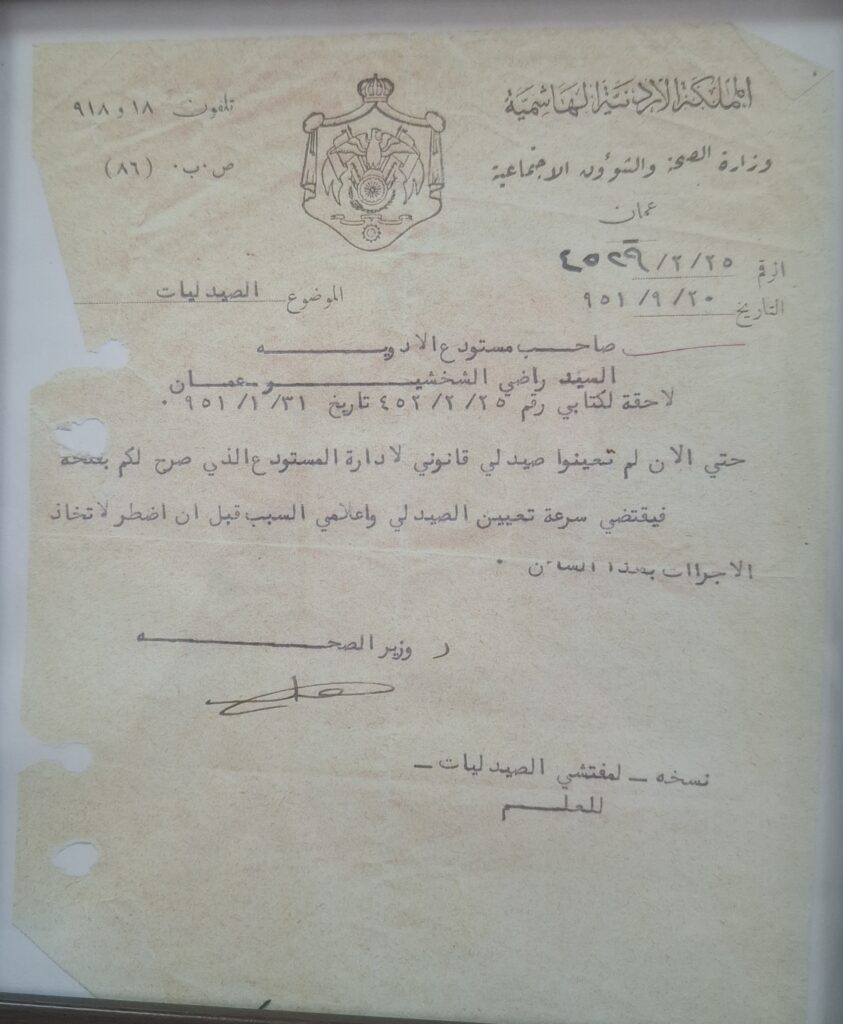 المملكة الاردنية الهاشمية
وزارة الصحة والشؤون الاجتماعية
عمان
تلفون ١٨ و ٩١٨
ص.ب. (٨٦)
الرقم ٢٥ / ٢ / ٤٥٢٩
التاريخ ٢٠ / ٩ / ٩٥١
الموضوع الصيدليات
صاحب مستودع الادويه
السيد راضي الشخشير - عمان
لاحقة لكتابي رقم ٢٥ / ٢ / ٤٥٢ تاريخ ٣١ / ١ / ٩٥١ .
حتي الان لم تعينوا صيدلي قانوني لادارة المستودع الذي صرح لكم بفتحه
فيقتضي سرعة تعيين الصيدلي واعلامي السبب قبل ان اضطر لاتخاذ
الاجراات بهذا الشان .
ر وزير الصحه
نسخه - لمفتشي الصيدليات -
للعلم